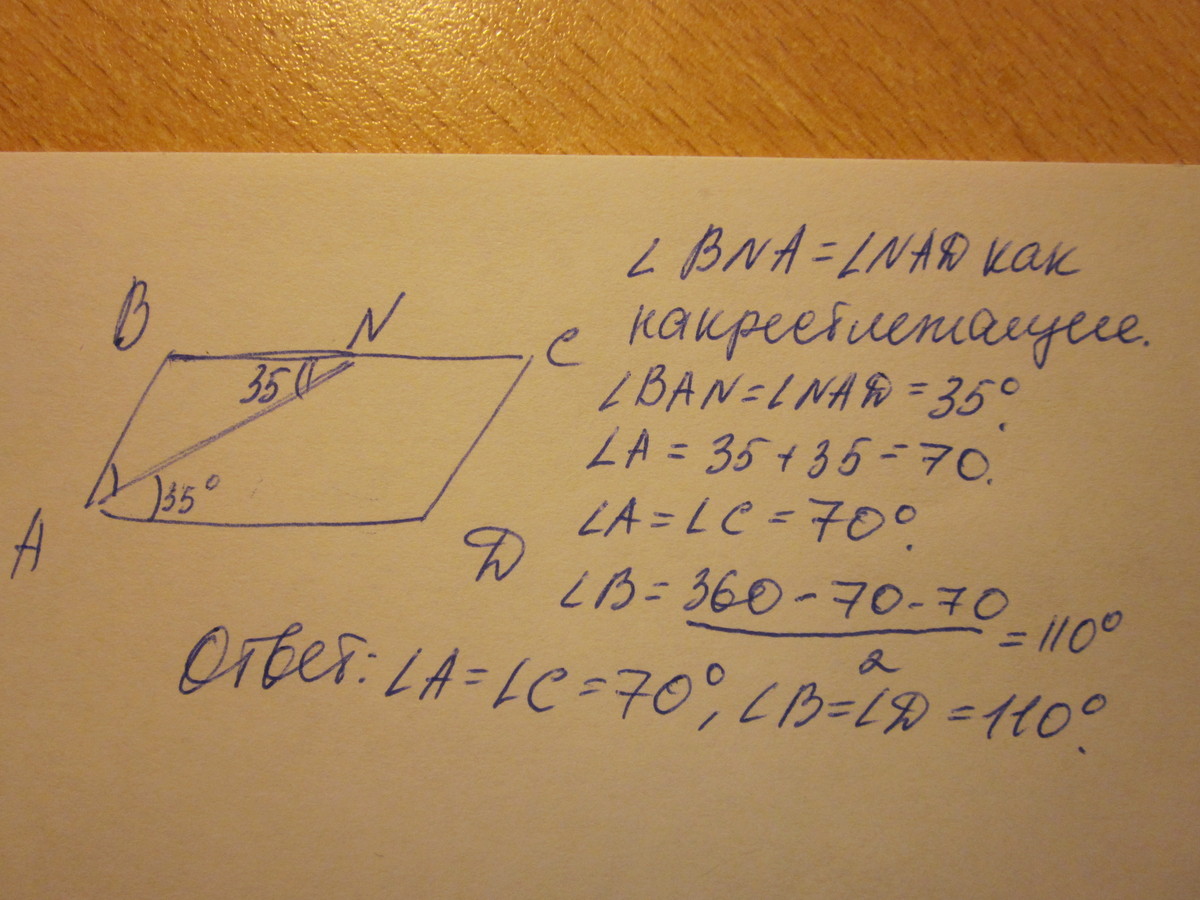 B
N
C
35
35°
A
D
∠BNA = ∠NAD как
накрестлежащие.
∠BAN = ∠NAD = 35°.
∠A = 35 + 35 = 70.
∠A = ∠C = 70°.
∠B = 360 - 70 - 70 = 110°
2
Ответ: ∠A = ∠C = 70°, ∠B = ∠D = 110°.